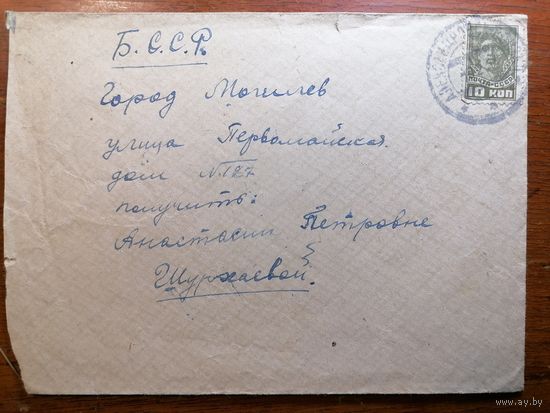 Б.С.С.Р.
Город Могилев
улица Первомайская
дом №127
получить:
Анастасии Петровне
Шурхаевой.
ПОЧТА СССР
10 КОП
www.ay.by